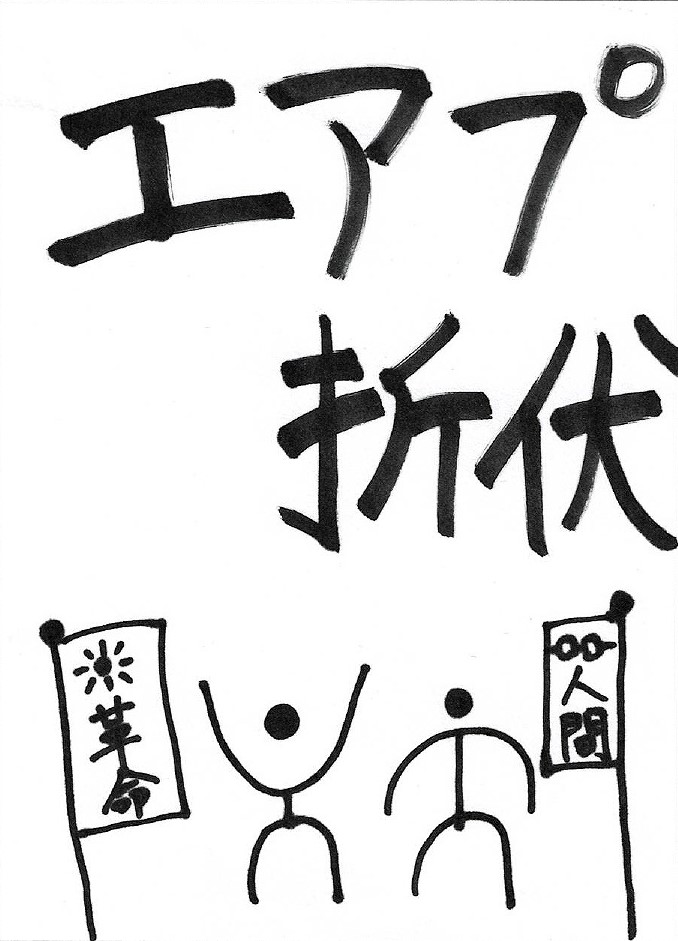 エアプ
折伏
革命
人間